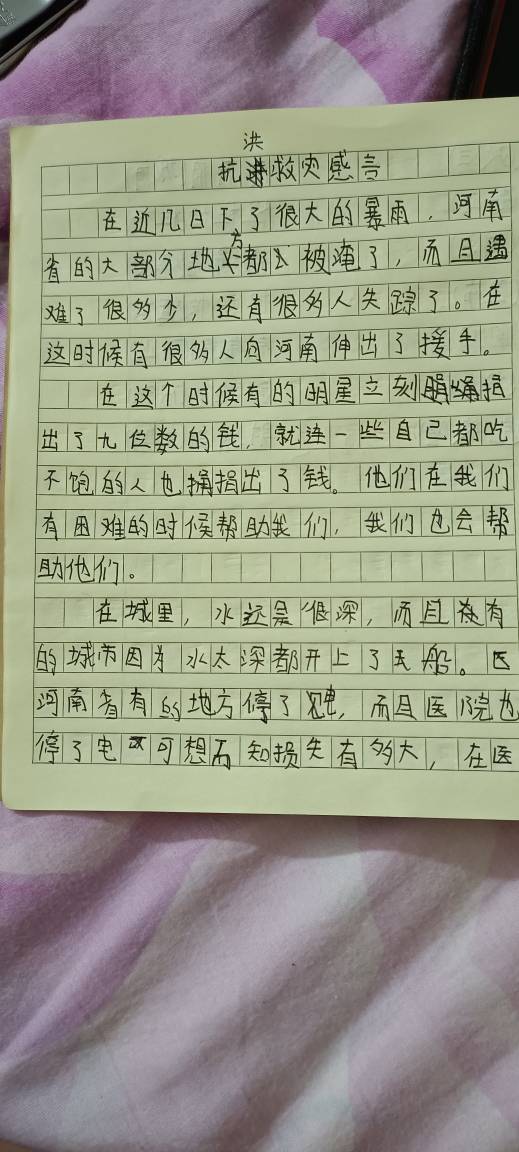 洪
抗洪救灾感言
在近几日下了很大的暴雨，河南
省的大部分地方都被淹了，而且遇
难了很多少，还有很多人失踪了。在
这时候有很多人向河南伸出了援手。
在这个时候有的明星立刻捐
出了九位数的钱，就连一些自己都吃
不饱的人也捐出了钱。他们在我们
有困难的时候帮助我们，我们也会帮
助他们。
在城里，水还是很深，而且有
的城市因为水太深都开上了船。
河南省有的地方停了电，而且医院也
停了电可想而知损失有多大，在医